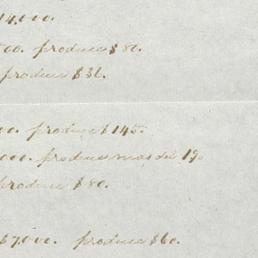 14,000.
500. produce $82.
produce $32.
00. produce $145.
000. produce mas del 1%
produce $80.
$7,000. produce $60.